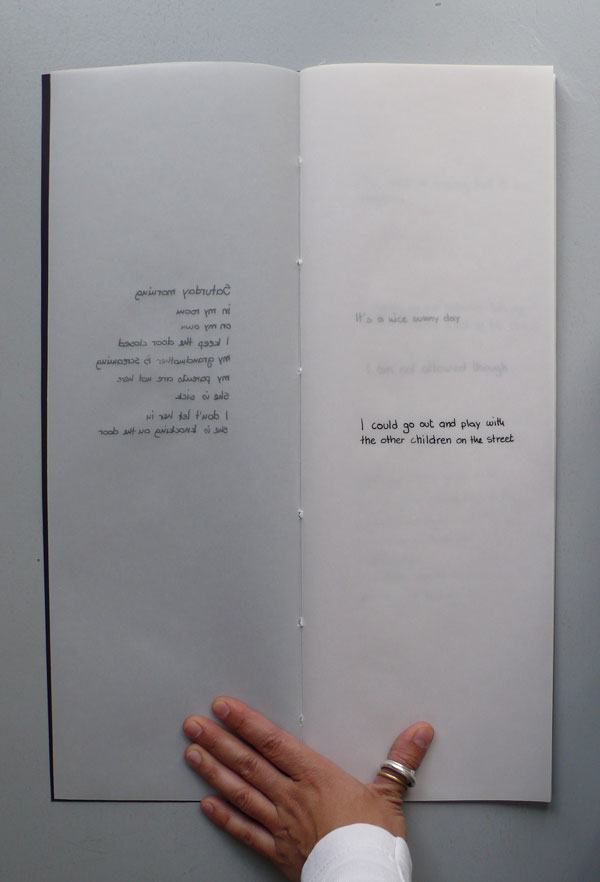 Saturday morning
in my room
on my own
I keep the door closed
my grandmother is screaming
my parents are not here
she is sick
I don't let her in
she is knocking on the door
It's a nice sunny day
I am not allowed though
I could go out and play with
the other children on the street